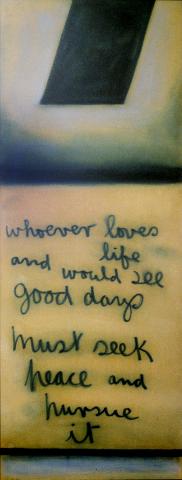 whoever loves
life
and would see
good days
must seek
peace and
pursue
it